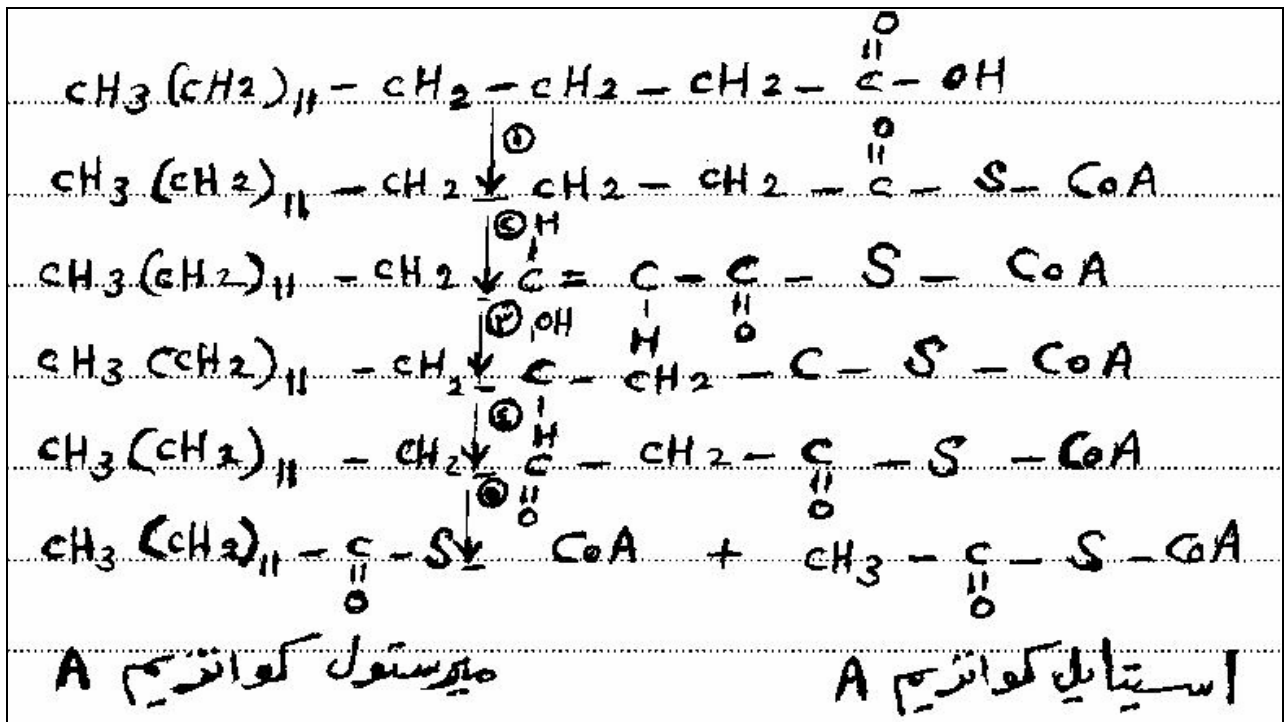 CH3(CH2)11 - CH2 - CH2 - CH2 - C - OH
O
①
CH3(CH2)11 - CH2 - CH2 - CH2 - C - S - CoA
O
②
CH3(CH2)11 - CH2 - C = C - C - S - CoA
H H O
③
CH3(CH2)11 - CH2 - C - CH2 - C - S - CoA
OH H
④
CH3(CH2)11 - CH2 - C - CH2 - C - S - CoA
O O
⑤
CH3(CH2)11 - C - S - CoA + CH3 - C - S - CoA
O O
ميرستول كوانزيم A
اسيتايل كوانزيم A